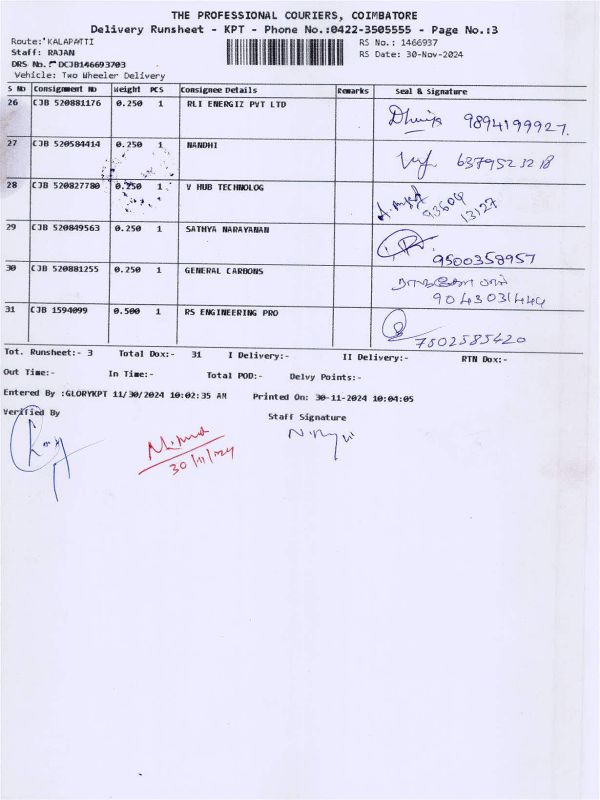 THE PROFESSIONAL COURIERS, COIMBATORE
Delivery Runsheet - KPT - Phone No.:0422-3505555 - Page No.:3
Route: KALAPATTI RS No.: 1466937
Staff: RAJAN RS Date: 30-Nov-2024
DRS No. DCJB146693703
Vehicle: Two Wheeler Delivery
S No Consignment No Weight PCS Consignee Details Remarks Seal & Signature
26 CJB 520881176 0.250 1 RLI ENERGIZ PVT LTD 9894199927.
27 CJB 520584414 0.250 1 NANDHI 6379523218
28 CJB 520827780 0.250 1 V HUB TECHNOLOG 93604 13127
29 CJB 520849563 0.250 1 SATHYA NARAYANAN 9500358957
30 CJB 520881255 0.250 1 GENERAL CARBONS
9043031444
31 CJB 1594099 0.500 1 RS ENGINEERING PRO 7502585420
Tot. Runsheet:- 3 Total Dox:- 31 I Delivery:- II Delivery:- RTN Dox:-
Out Time:- In Time:- Total POD:- Delvy Points:-
Entered By :GLORYKPT 11/30/2024 10:02:35 AM Printed On: 30-11-2024 10:04:05
Verified By Staff Signature
30/11/24